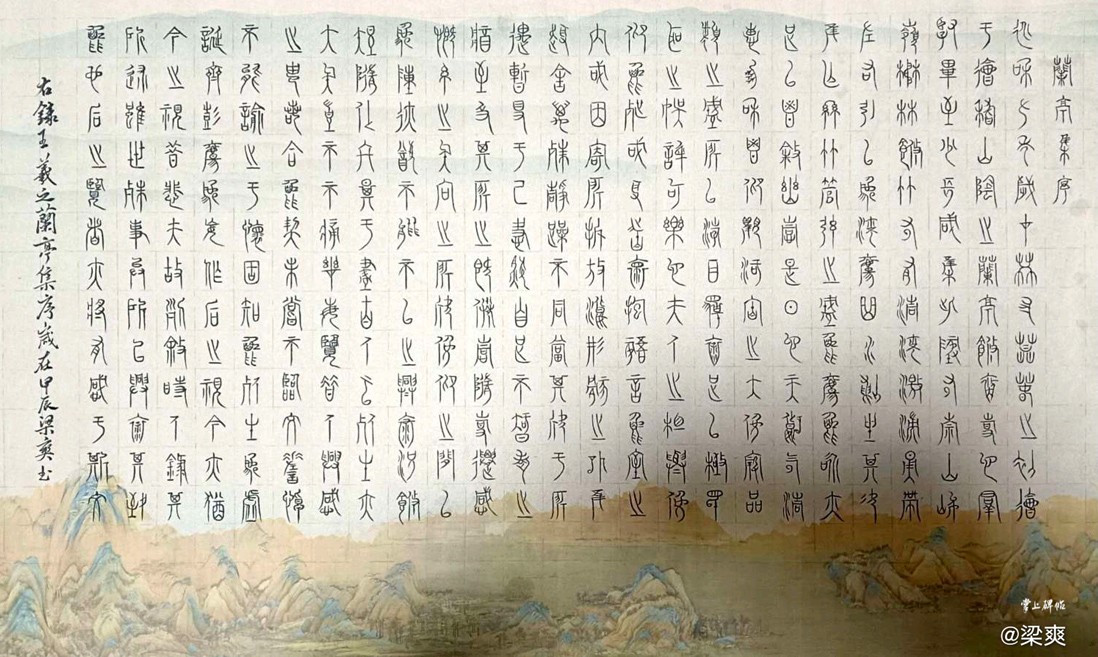 蘭亭集序
永和九年歲在癸丑暮春之初會
于會稽山陰之蘭亭修禊事也群
賢畢至少長咸集此地有崇山峻
嶺茂林修竹又有清流激湍映帶
左右引以為流觴曲水列坐其次
雖無絲竹管絃之盛一觴一詠亦
足以暢敘幽情是日也天朗氣清
惠風和暢仰觀宇宙之大俯察品
類之盛所以游目騁懷足以極視
聽之娛信可樂也夫人之相與俯
仰一世或取諸懷抱晤言一室之
內或因寄所託放浪形骸之外雖
趣舍萬殊靜躁不同當其欣于所
遇暫得于己快然自足不知老之
將至及其所之既倦情隨事遷感
慨係之矣向之所欣俛仰之間以
為陳迹猶不能不以之興懷況修
短隨化終期于盡古人云死生亦
大矣豈不不痛哉每覽昔人興感
之由若合一契未嘗不臨文嗟悼
不能喻之于懷固知一死生為虛
誕齊彭殤為妄作后之視今亦猶
今之視昔悲夫故列敘時人錄其
所述雖世殊事異所以興懷其致
一也后之覽者亦將有感于斯文
右錄王羲之蘭亭集序歲在甲辰梁爽书
掌上碑帖
@梁爽